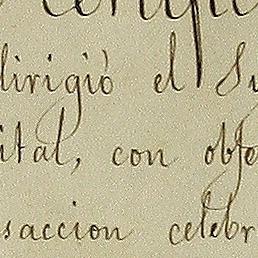 dirigió el Su
ital, con obje
saccion celebr